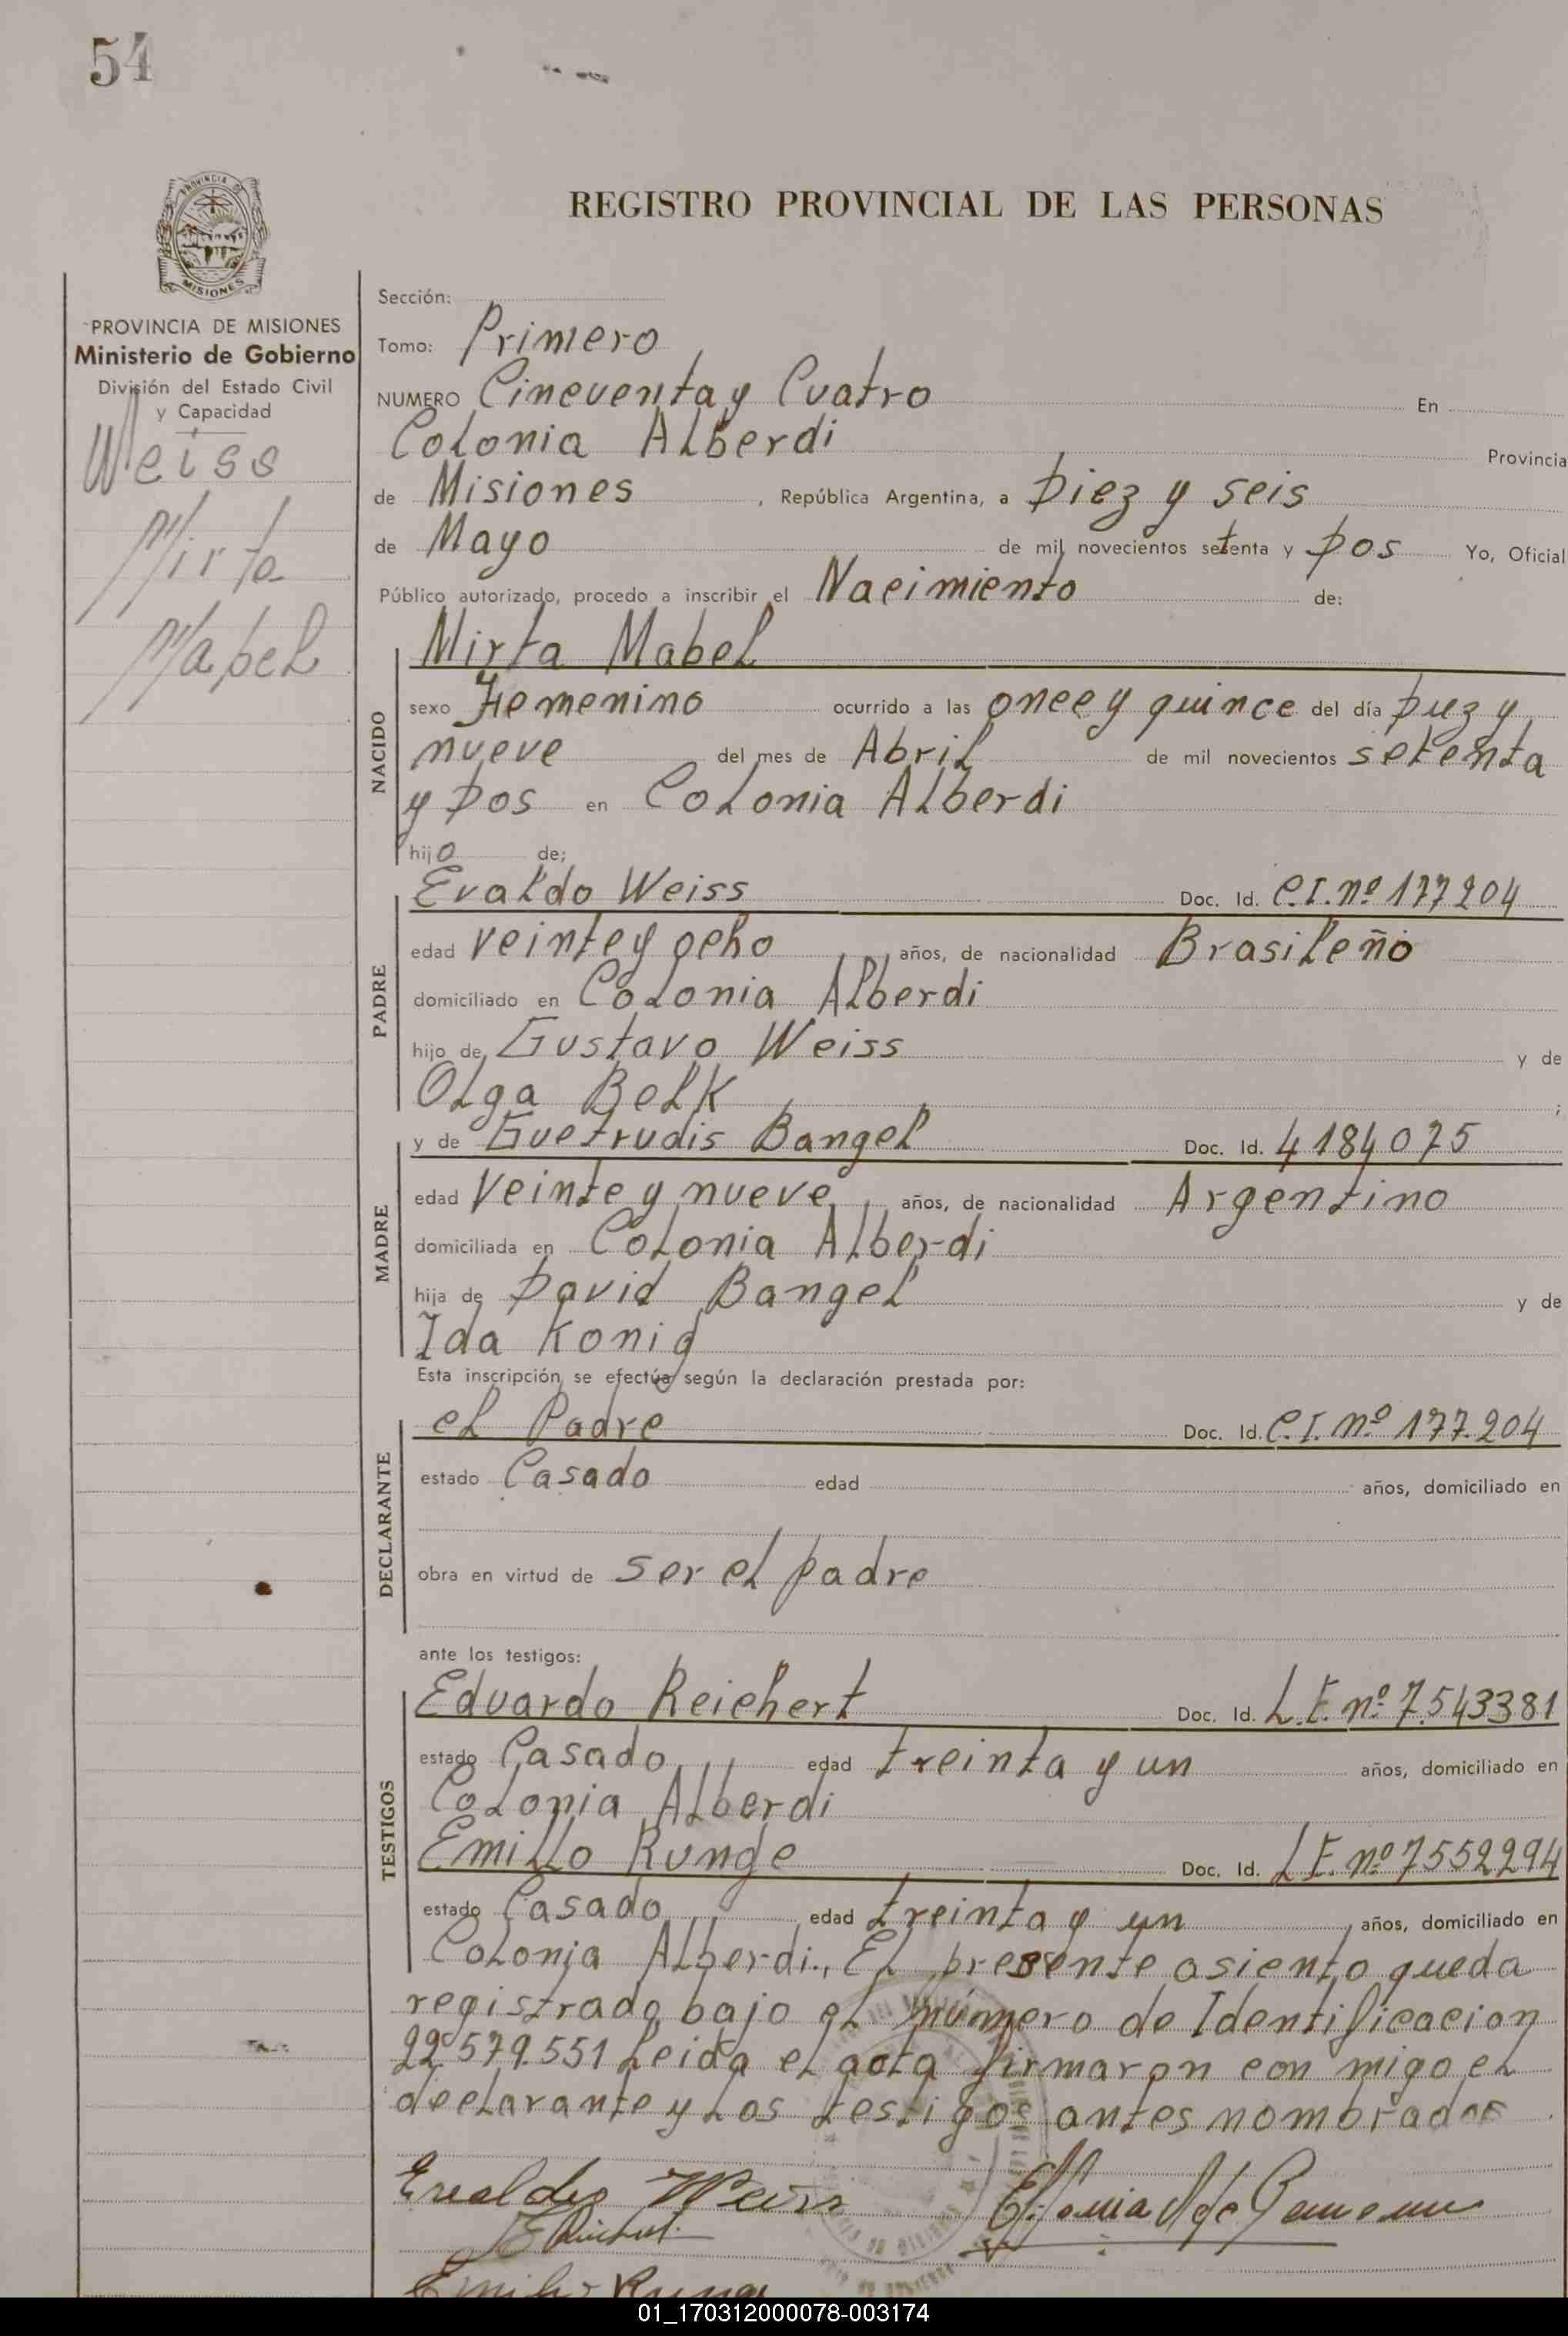 54
PROVINCIA DE
MISIONES
REGISTRO PROVINCIAL DE LAS PERSONAS
PROVINCIA DE MISIONES
Ministerio de Gobierno
División del Estado Civil
y Capacidad
Weiss
Mirta
Mabel
Sección:
Tomo: Primero
NUMERO Cincuenta y Cuatro En
Colonia Alberdi Provincia
de Misiones, República Argentina, a Diez y seis
de Mayo de mil novecientos setenta y Dos Yo, Oficial
Público autorizado, procedo a inscribir el Nacimiento de:
NACIDO
Mirta Mabel
sexo Femenino ocurrido a las once y quince del día Diez y
nueve del mes de Abril de mil novecientos setenta
y Dos en Colonia Alberdi
hijo de;
PADRE
Evaldo Weiss Doc. Id. C.I. nº 177204
edad veinte y ocho años, de nacionalidad Brasileño
domiciliado en Colonia Alberdi
hijo de Gustavo Weiss y de
Olga Belk ;
MADRE
y de Guetrudis Bangel Doc. Id. 4184075
edad Veinte y nueve años, de nacionalidad Argentino
domiciliada en Colonia Alberdi
hija de David Bangel y de
Ida Konig
Esta inscripción se efectúa según la declaración prestada por:
DECLARANTE
el Padre Doc. Id. C.I. nº 177.204
estado Casado edad años, domiciliado en
obra en virtud de ser el padre
ante los testigos:
TESTIGOS
Eduardo Reichert Doc. Id. L.E. nº 7.543381
estado Casado edad treinta y un años, domiciliado en
Colonia Alberdi
Emilio Runge Doc. Id. L.E. nº 7552294
estado Casado edad treinta y un años, domiciliado en
Colonia Alberdi., El presente asiento queda
registrado bajo el número de Identificacion
22.579.551 Leida el acta firmaron con migo el
declarante y Los testigos antes nombrados
Evaldo Weiss
Emilio Runge
01_170312000078-003174